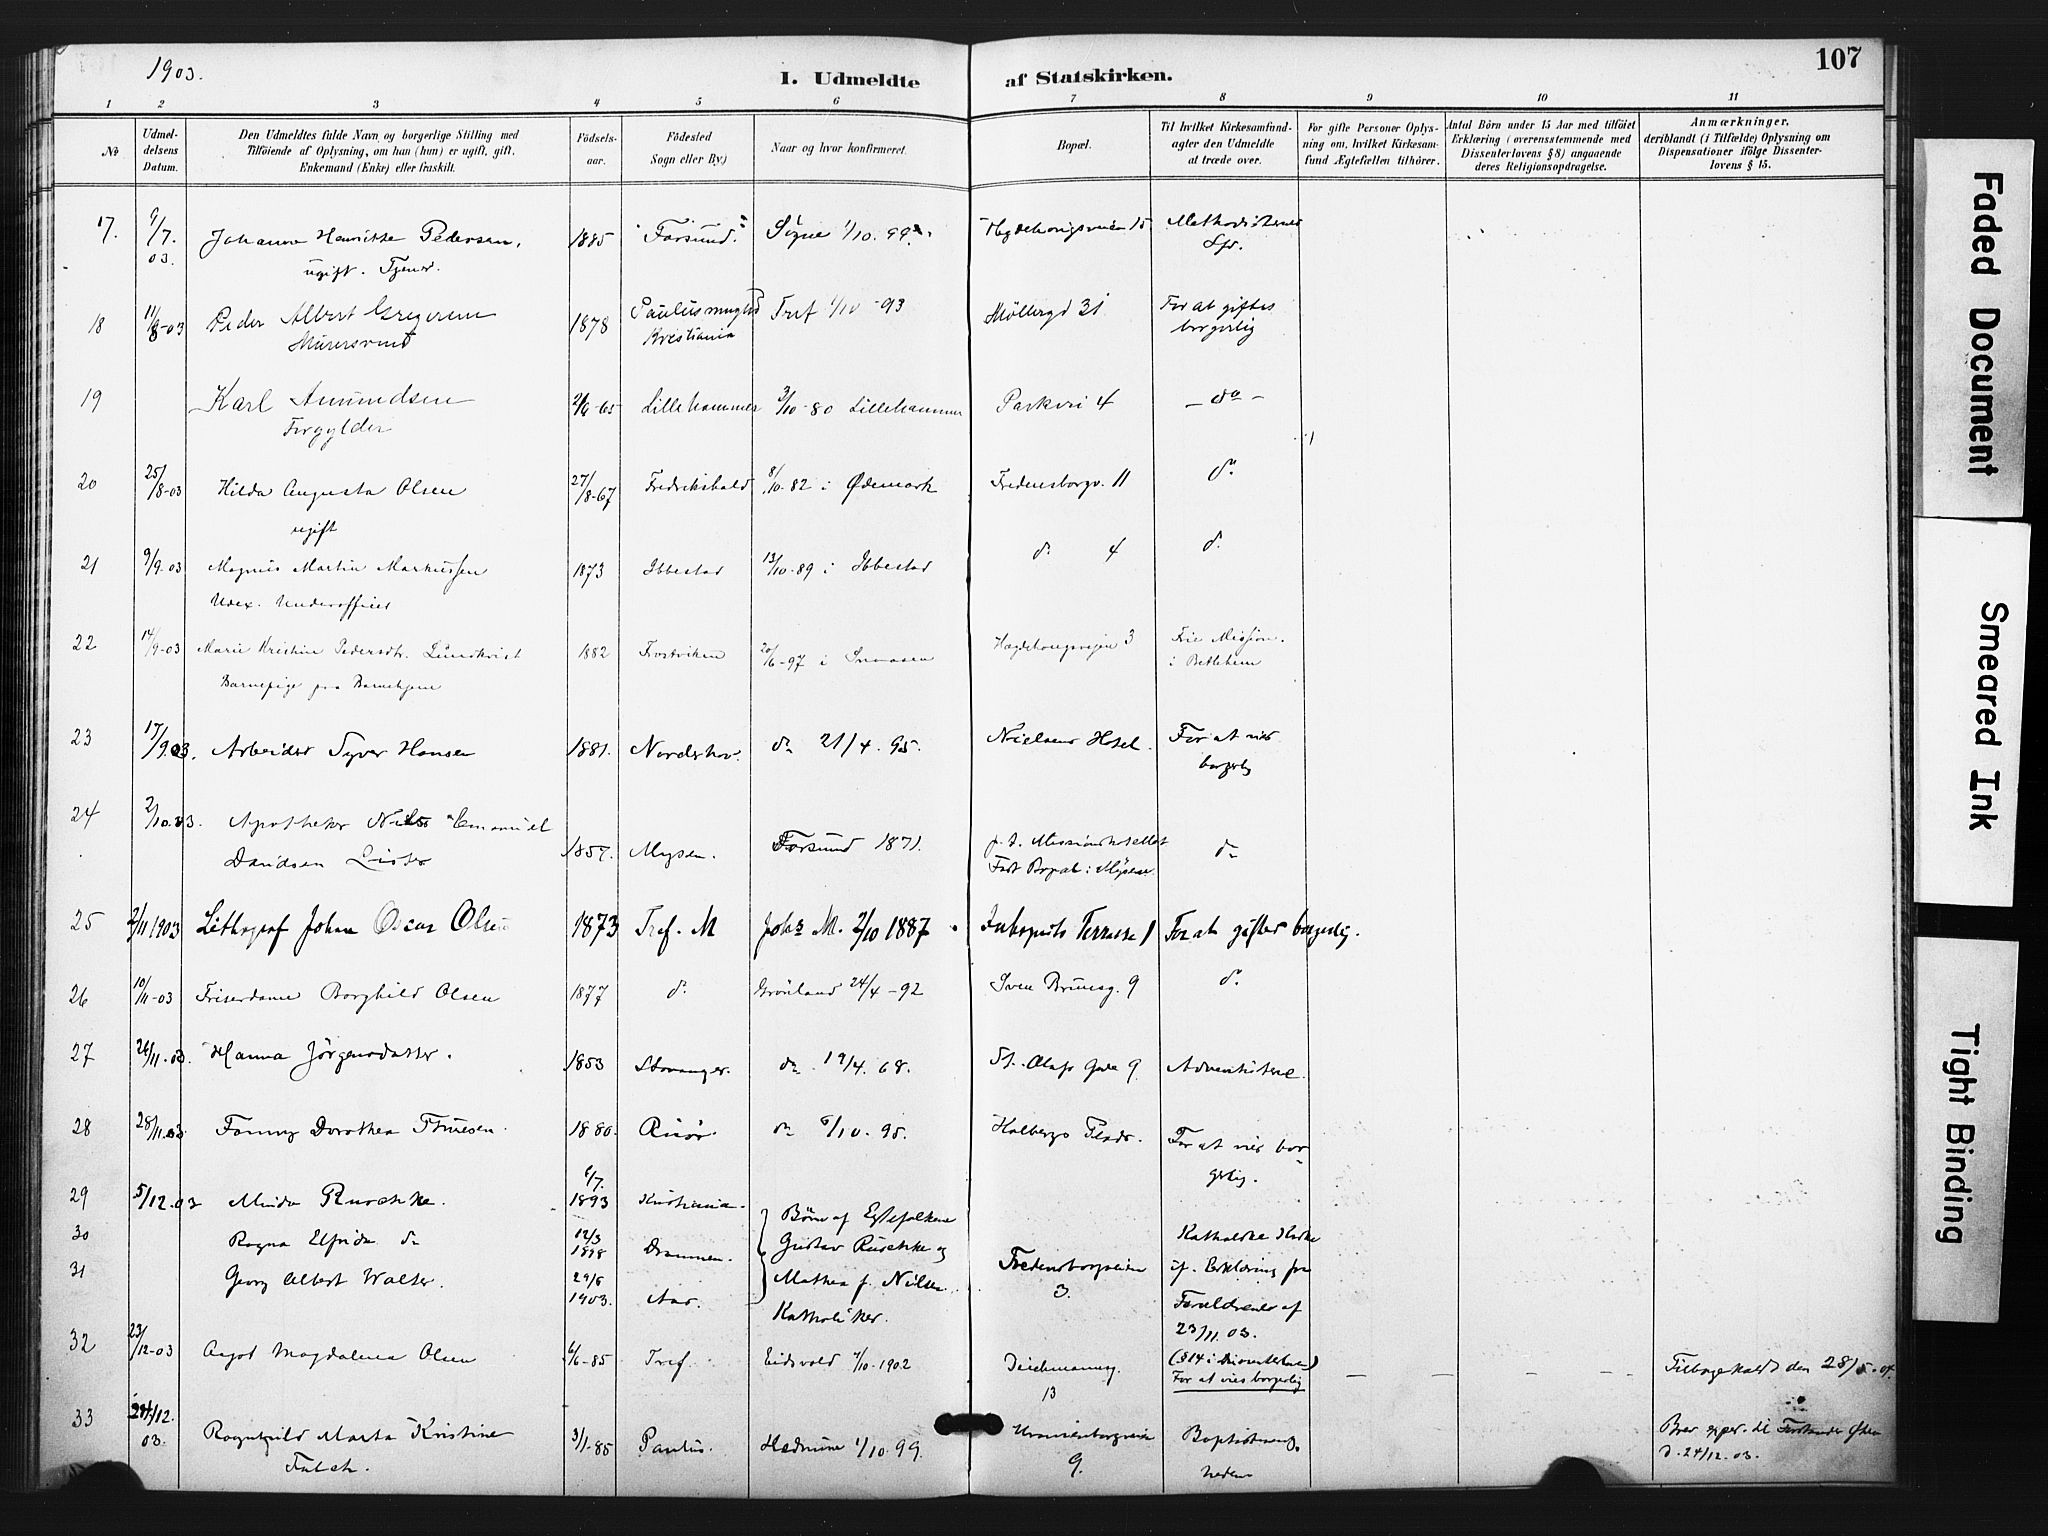 1903.
I. Udmeldte af Statskirken.
107
1 2 3 4 5 6 7 8 9 10 11
No
Udmel-
delsens
Datum.
Den Udmeldtes fulde Navn og borgerlige Stilling med
Tilføiende af Oplysning, om han (hun) er ugift, gift,
Enkemand (Enke) eller fraskilt.
Fødsels-
aar.
Fødested
Sogn eller By.)
Naar og hvor konfirmeret.
Bopæl.
Til hvilket Kirkesamfund-
agter den Udmeldte
at træde over.
For gifte Personer Oplys-
ning om, hvilket Kirkesam-
fund Ægtefællen tilhører.
Antal Børn under 15 Aar med tilføiet
Erklæring (overensstemmende med
Dissenterlovens § 8) angaaende
deres Religionsopdragelse.
Anmærkninger,
deriblandt (i Tilfælde) Oplysning om
Dispensationer ifølge Dissenter-
lovens § 15.
17. 6/7. 03. Johanne Henriette Pedersen, 1885 Farsund. Søgne 1/10. 99. Hegdehaugsveien 15 Methodisternes
ugift. Tjener.
18 11/8-03 Peder Albert Gregersen 1878 Paulus Tref 1/10-93 Möllergd 31 For at giftes
Murersvend Kristiania borgerlig
19 Karl Amundsen 2/6-65 Lillehammer 3/10-80 Lillehammer Parkvei 4 - do -
Forgylder
20 25/8-03 Hilda Augusta Olsen 27/8-67 Fredrikshald 8/10.82 i Ødemark Fredensborgv. 11 do
ugift
21 9/9.03 Magnus Martin Markussen 1873 Ibbestad 13/10-89 i Ibbestad do 4 do
Udex. Underofficer
22 14/9-03 Marie Kristine Pedersdtr. Lundkvist 1882 Frostviken 20/6-97 i Snaasen Hægdehaugsveien 3 Frie Mission.
Barnepige paa Barnehjem i Betlehem
23 17/9.03. Arbeider Syver Hansen 1881. Norderhov. do 21/4. 95. Nielsens Hotel. For at vies
borgerlig
24 2/10.03. Apotheker Nils Emanuel
Davidsen Lister 1857. Mysen. Farsund 1871. p.t. Missionshotellet do
Fast Bopæl i Mysen.
25 2/11 1903 Lithograf Johan Oscar Olsen 1873 Tref. M Johs M. 2/10 1887 Terrasse 1 For at giftes borgerlig.
26 10/11-03 Friserdame Borghild Olsen 1877 do Grönland 24/4-92 Sven Brunsg. 9 do
27 26/11.03. Hanna Jörgensdatter. 1853 Stavanger. do 19/4. 68. St. Olafs Gade 9. Adventisterne.
28 28/11.03. Fanny Dorothea Thuesen. 1880. Risør. do 6/10. 95. Holbergs Plads. For at vies bor-
gerlig.
29 5/12.03 Minda Ruschke. 6/7. 1893 Kristiania. Børn af Egtefolkene
30 Ragna Elfrida do 12/3 1898 Drammen. Gustav Ruschke og Katholske Kirke
31 Georg Albert Walter. 29/6 1903. Aas. Mathea f. Nilsen Fredensborgveien if. Erklæring fra
Katholiker. 3. Forældrene af
23/11.03.
32 23/12-03 Aagot Magdalena Olsen 6/6-85 Tref. Eidsvold /10-1902 Deichmansg. (§ 14 i Dissenterloven) Tilbagekaldt den 28/5-04.
13 For at vies borgerlig
33 24/12. 03. Ragnhild Marta Kristine 3/1-85 Paulus. Hedrum 1/10 99. Uranienborgveien Baptistmenig- Brev exper. til Forstander
Falch. 9. heden d. 24/12.03.
Faded Document
Smeared Ink
Tight Binding